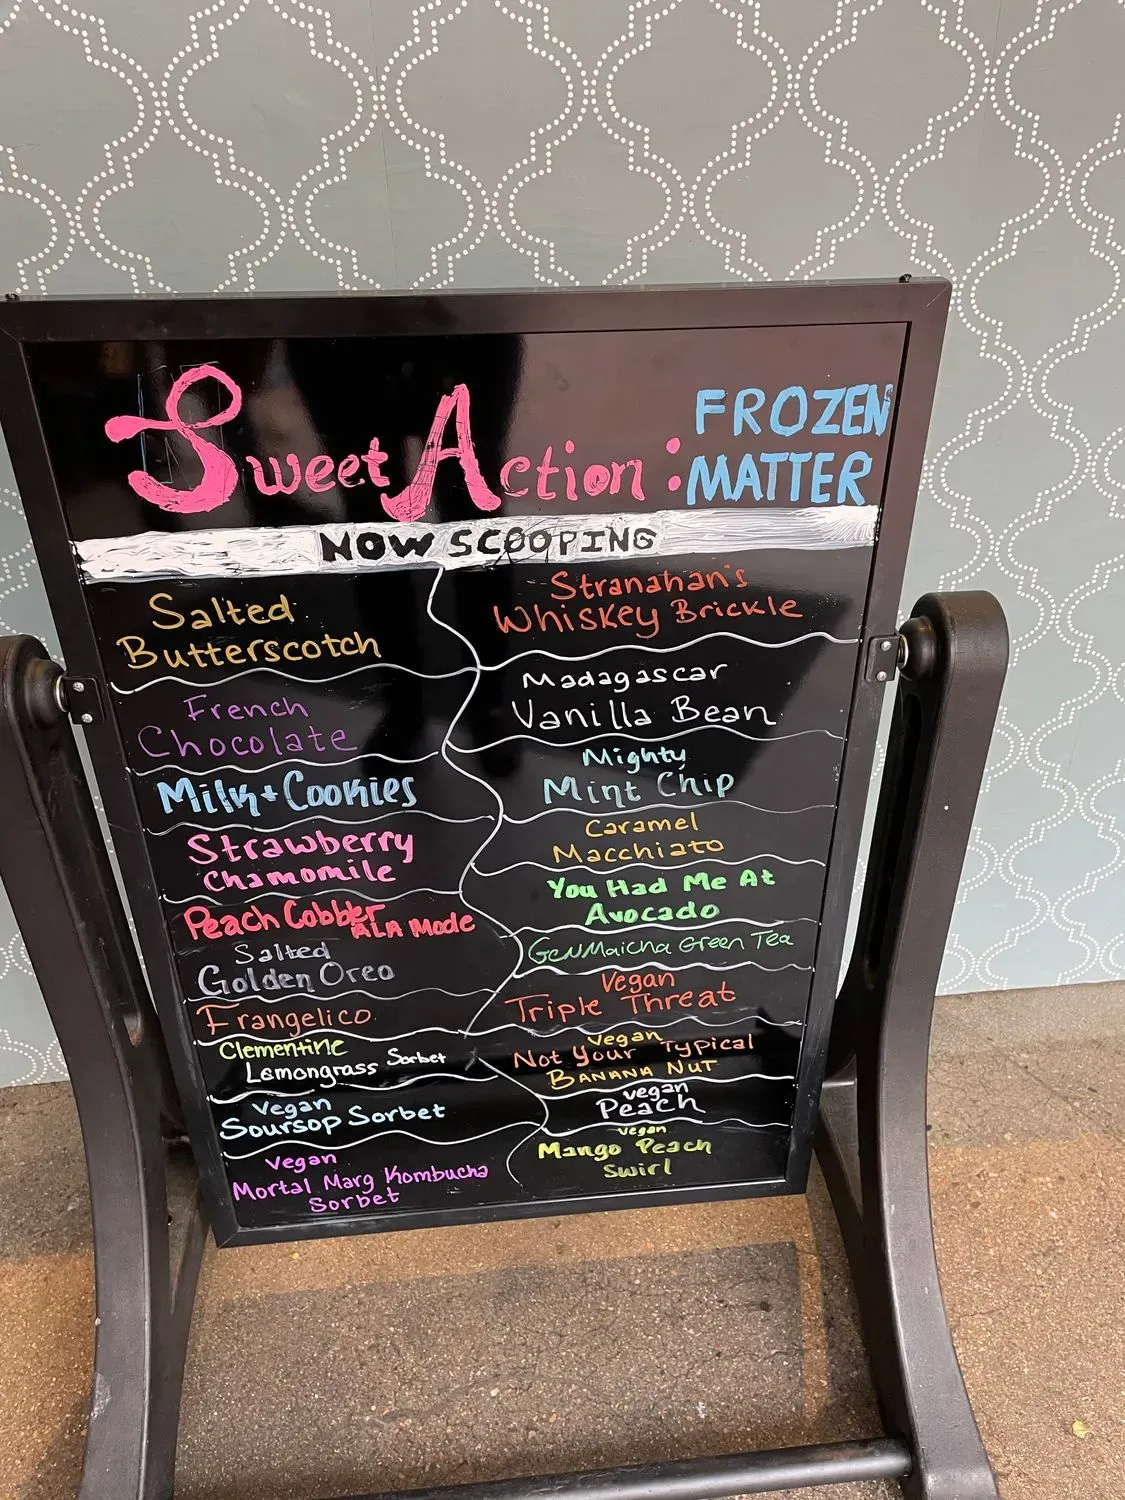 Sweet Action: FROZEN
MATTER
NOW SCOOPING
Salted
Butterscotch
French
Chocolate
Milk + Cookies
Strawberry
Chamomile
Peach Cobbler
ALA MODE
Salted
Golden Oreo
Frangelico
Clementine
Lemongrass Sorbet
Vegan
Soursop Sorbet
Vegan
Mortal Marg Kombucha
Sorbet
Stranahan's
Whiskey Brickle
Madagascar
Vanilla Bean
Mighty
Mint Chip
Caramel
Macchiato
You Had Me At
Avocado
GenMaicha Green Tea
Vegan
Triple Threat
Vegan
Not Your Typical
BANANA NUT
vegan
Peach
vegan
Mango Peach
Swirl